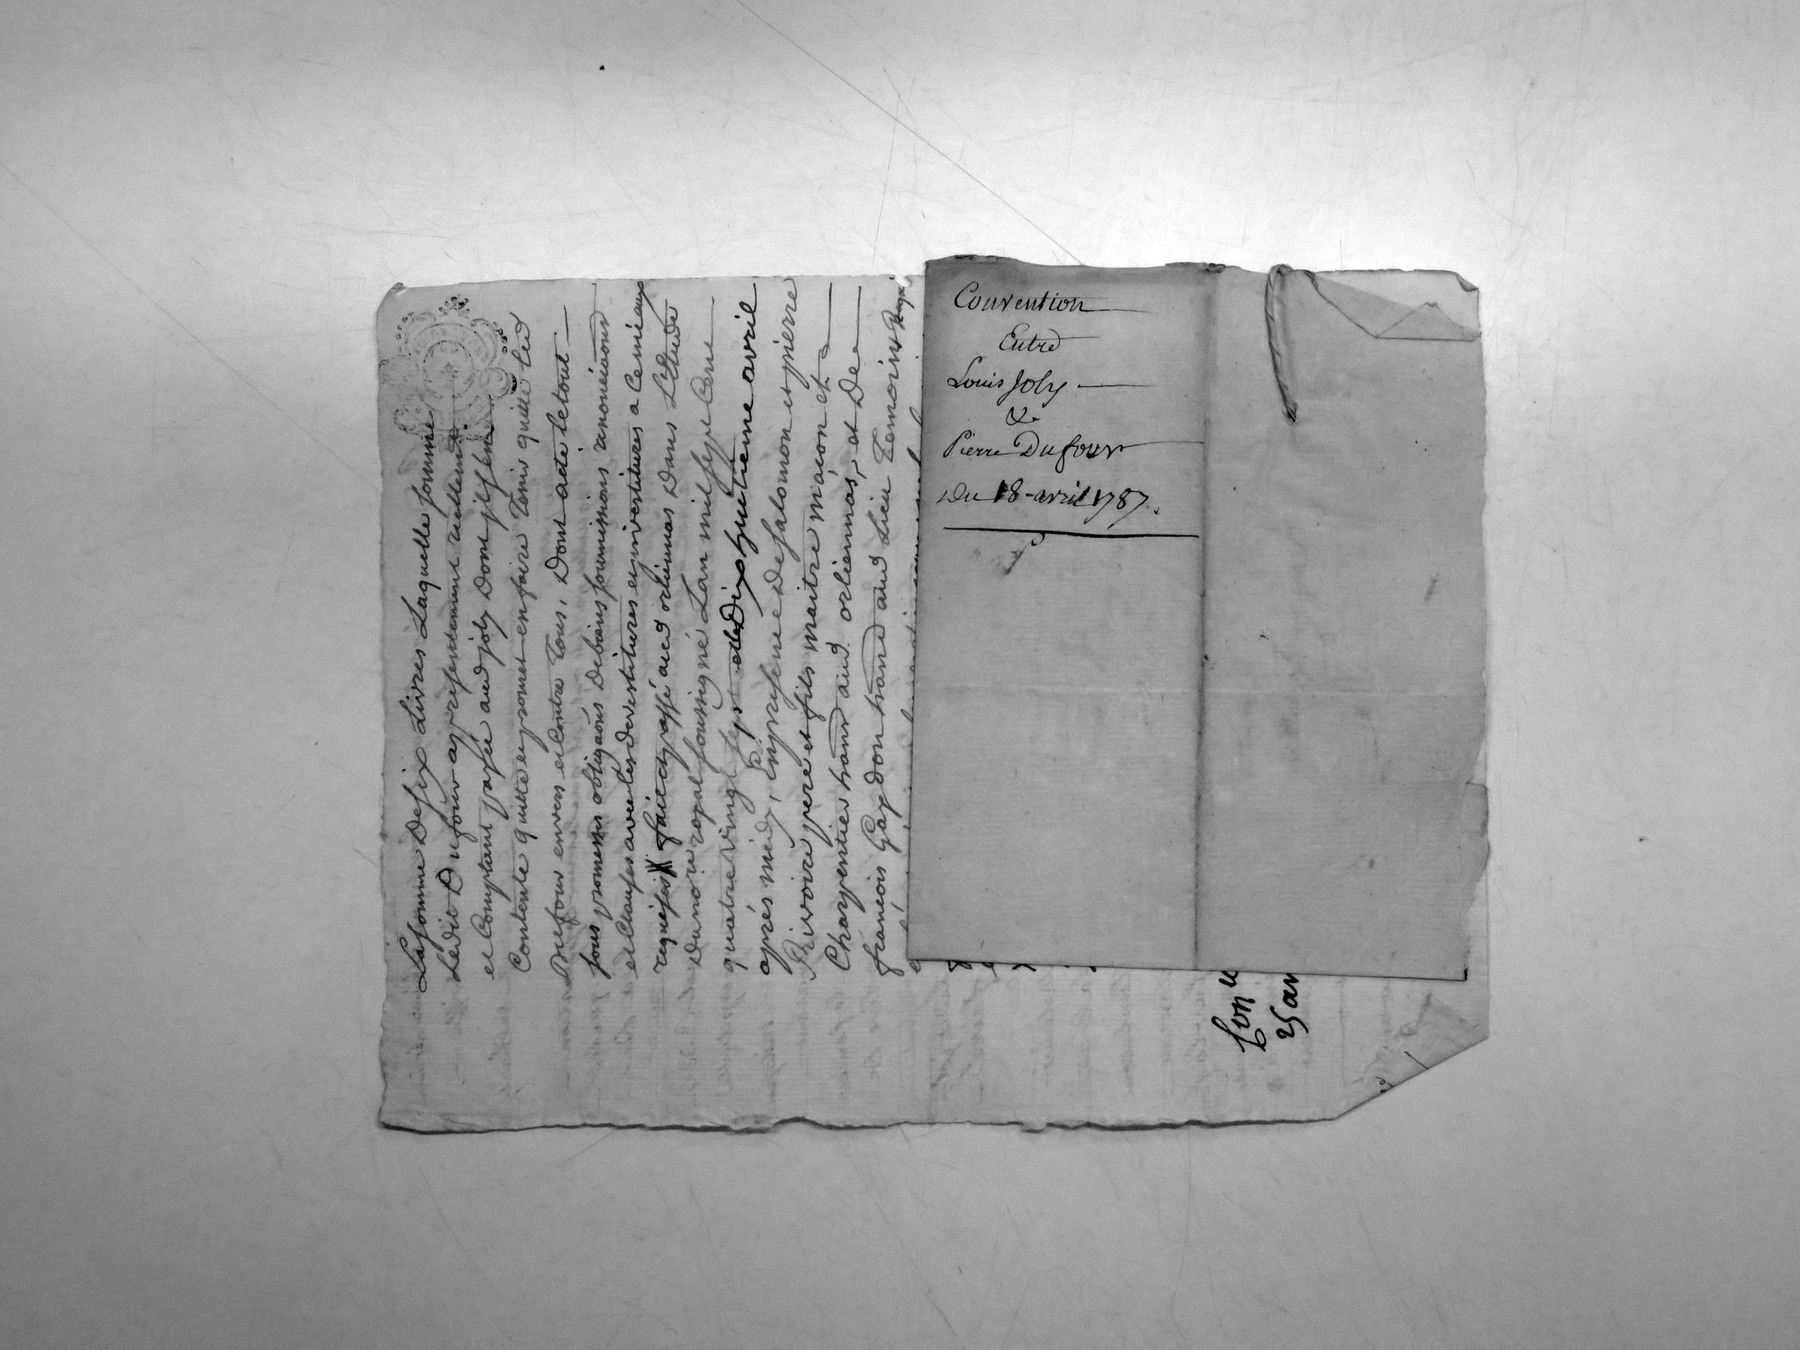 Convention
Entre
Louis Joly
&
Pierre Dufour
Du 18 avril 1787.
La somme De six Livres Laquelle somme
Ledit Dufour a presentement réellement
et Comptant payée aud joly Dont il sen
Contente quitte et promet en faire Tenir quitte led
Dufour envers et Contre Tous, Dont acte le tout
sous promesses obligaôns Debiens soumissions renonciaôns
et Clauses avec les Devestitures et investitures a Ce nécess
requises fait et passé aud orliennas Dans L'Etude
Du noire royal soussigné Lan mil sept Cent
quatre vingt sept et le Dix huitieme avril
après midy, En presence De
Rivoire pere et fils maitre macon et
Charpentier hants aud. orliennas, et De
françois Gaydon hant aud Lieu Temoins Requis